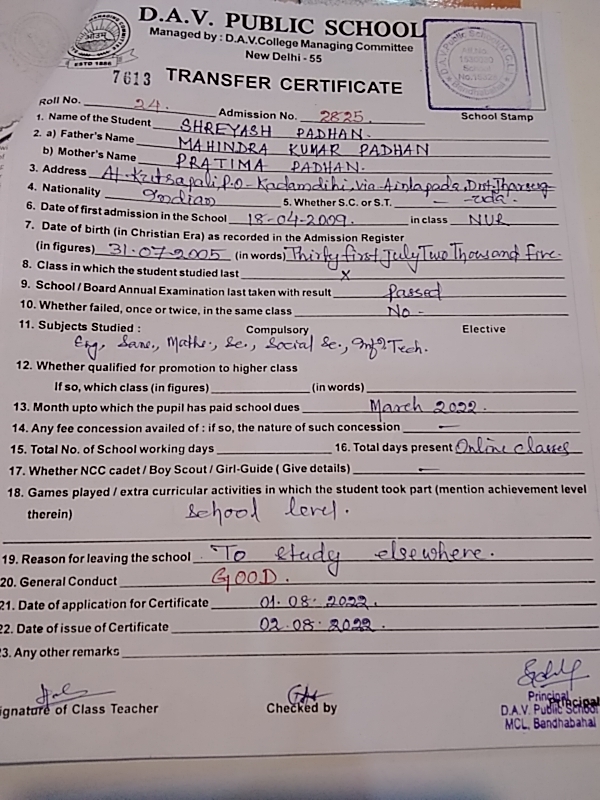 D.A.V. PUBLIC SCHOOL
Managed by : D.A.V.College Managing Committee
New Delhi - 55
ESTD 1886
7613 TRANSFER CERTIFICATE
School Stamp
Roll No. 24. Admission No. 2825.
1. Name of the Student SHREYASH PADHAN.
2. a) Father's Name MAHINDRA KUMAR PADHAN
b) Mother's Name PRATIMA PADHAN.
3. Address At-Kutsapali, P.O-Kadamdihi, Via-Ainlapada, Dist-Jharsug
-uda.
4. Nationality Indian 5. Whether S.C. or S.T. —
6. Date of first admission in the School 18-04-2009. in class NUR
7. Date of birth (in Christian Era) as recorded in the Admission Register
(in figures) 31-07-2005 (in words) Thirty first July Two Thousand Five.
8. Class in which the student studied last X
9. School / Board Annual Examination last taken with result Passed
10. Whether failed, once or twice, in the same class No -
11. Subjects Studied : Compulsory Elective
Eng., Sans., Maths., Sc., Social Sc., Infn Tech.
12. Whether qualified for promotion to higher class
If so, which class (in figures) (in words)
13. Month upto which the pupil has paid school dues March 2022.
14. Any fee concession availed of : if so, the nature of such concession —
15. Total No. of School working days 16. Total days present Online classes
17. Whether NCC cadet / Boy Scout / Girl-Guide ( Give details) —
18. Games played / extra curricular activities in which the student took part (mention achievement level
therein) School level.
19. Reason for leaving the school To study elsewhere.
20. General Conduct GOOD.
21. Date of application for Certificate 01.08.2022.
22. Date of issue of Certificate 02.08.2022.
23. Any other remarks
ignature of Class Teacher Checked by Principal
Principal
D.A.V. Public School
MCL, Bandhabahal